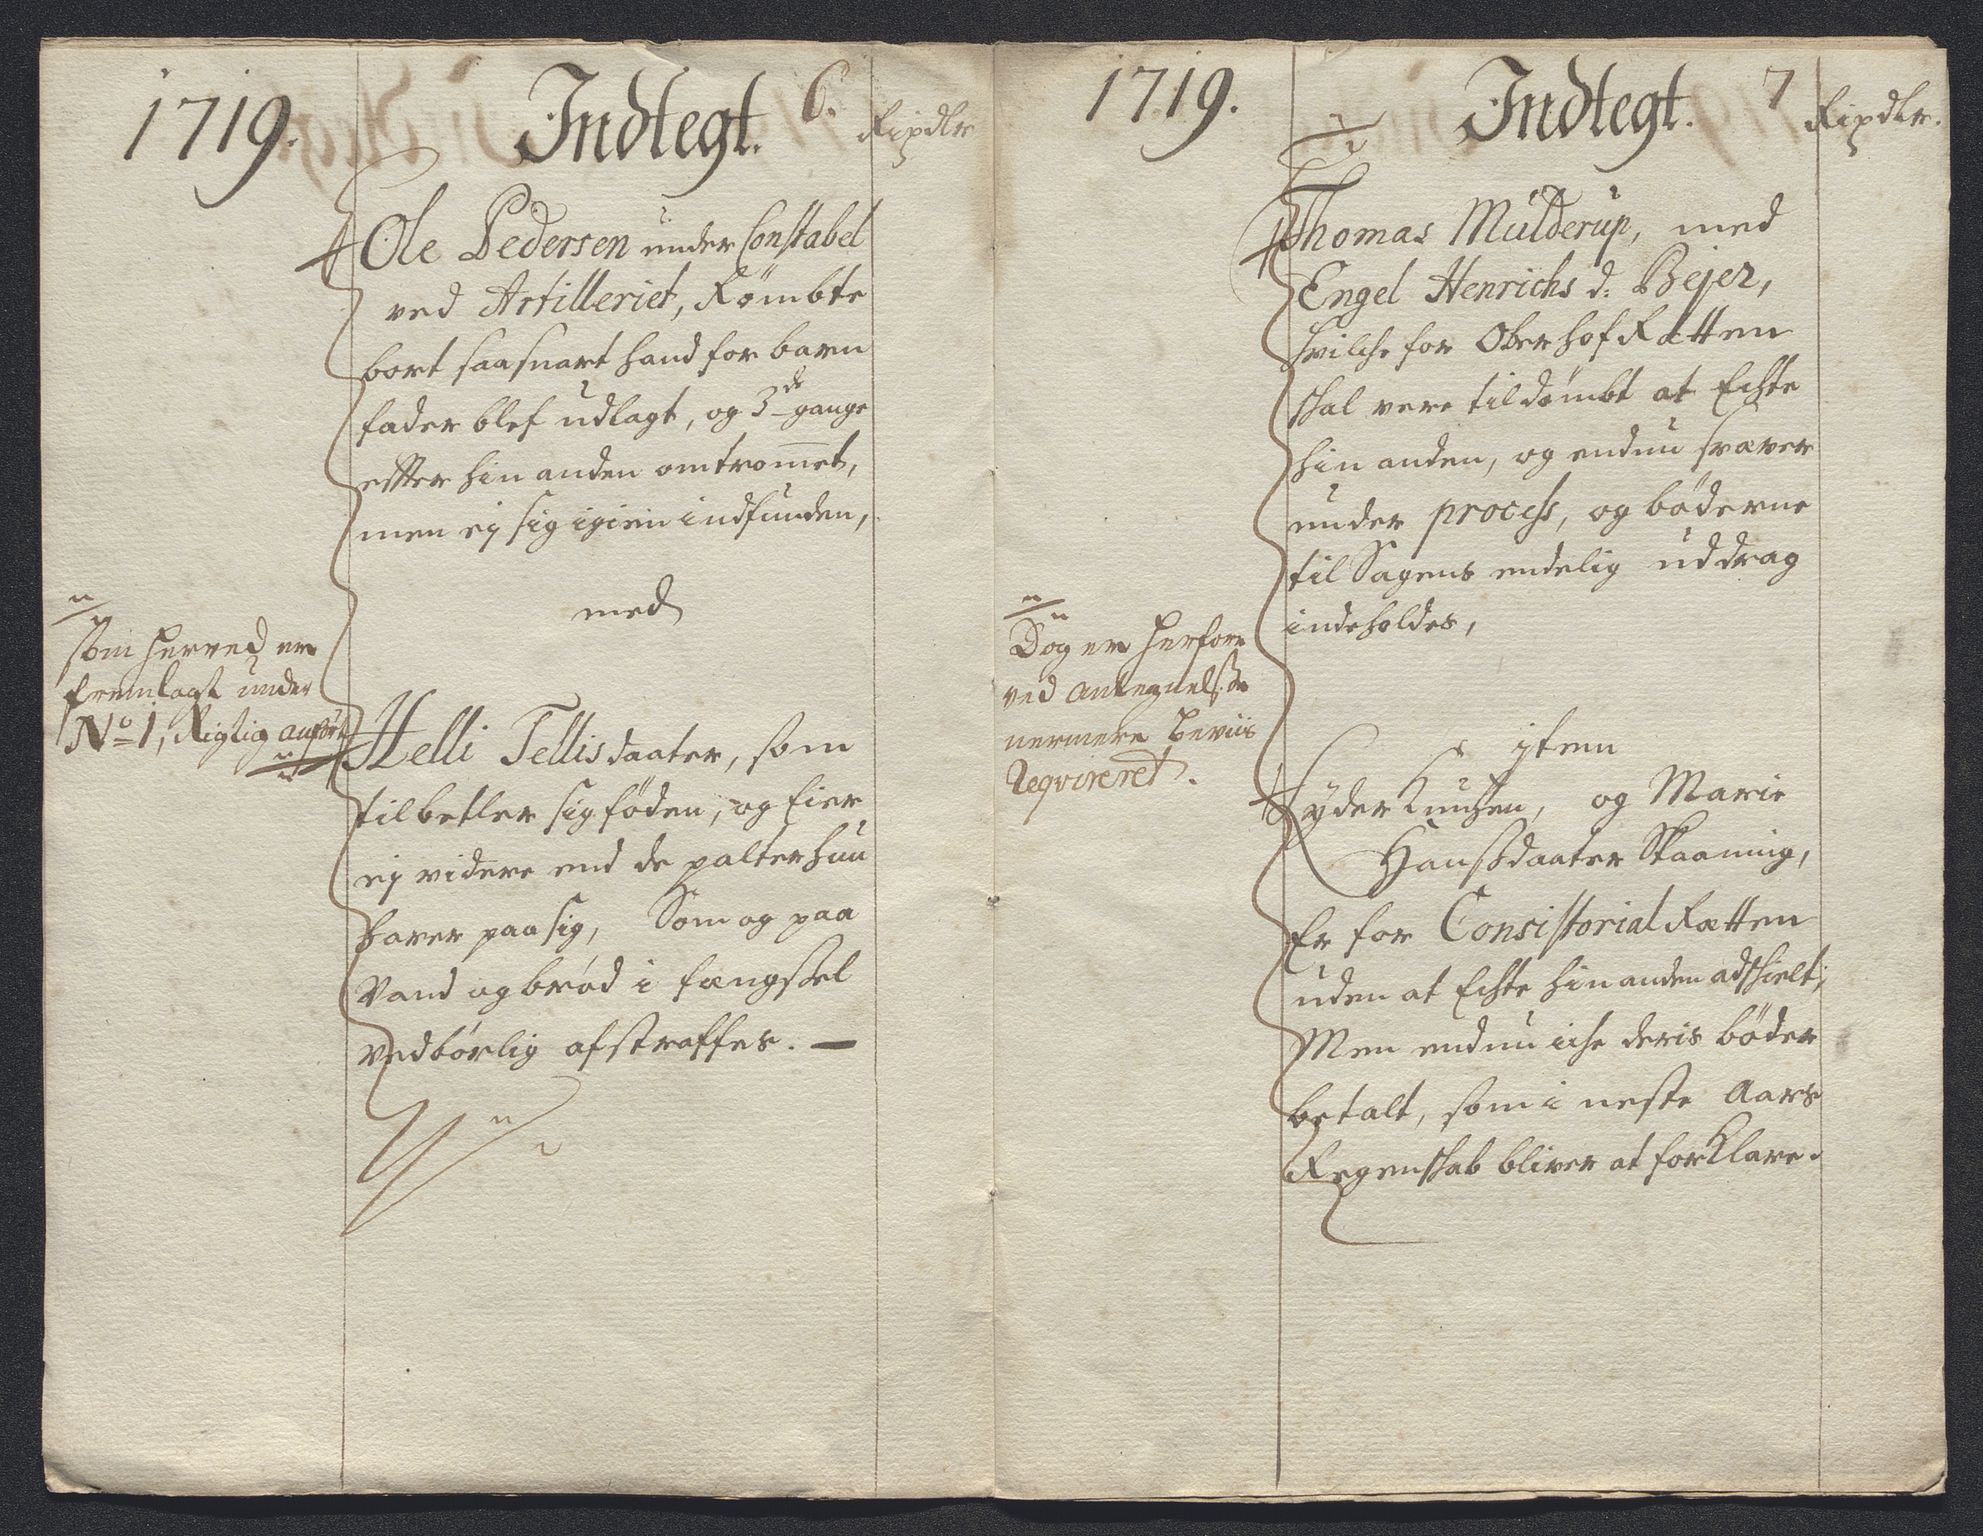 1719.
Indtegt.
6.
Rixdlr
Ole Pedersen under Constabel
ved Artilleriet, Rømbte
bort saasnart hand for barn
fader blef udlagt, og 3de gange
effter hin anden omtrommet,
men ej sig igien indfunden,
med
Som herved er
fremlagt under
No 1, Rigtig anført
Helli Tellisdaater, som
tilbetler sig føden, og Eier
ej videre end de palter hun
haver paa sig, Som og paa
Vand og brød i fængssel
vedbørlig afstraffes. —
1719.
Indtegt.
7
Rixdlr.
Thomas Mulderup, med
Engel Henrichs d: Bejer,
hvilche for Oberhof Rætten
skal vere tildømbt at Echte
hin anden, og endnu svæver
under process, og bøderne
til Sagens endelig uddrag
indeholdes,
Dog er herforre
ved Antegnelsse
nermere beviis
Reqvireret.
item
Lyder Knudsen, og Marie
Hanssdaater Skaaning,
Er for Consistorial Rætten
uden at Echte hin anden adskielt;
Men endnu iche deris bøder
betalt, som i neste Aars
Regenskab bliver at forklare.